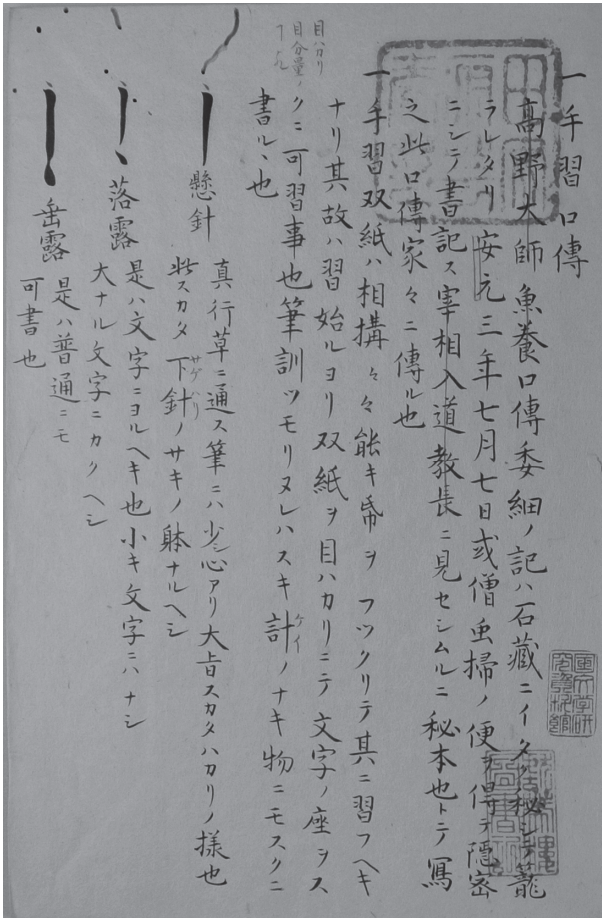 一手習口傳
高野大師魚養口傳委細ノ記ハ石藏ニイタク秘シテ籠
ラレタリ安元三年七月七日或僧虫掃ノ便ヲ得テ隠密
ニシテ書記ス宰相入道教長ニ見セシムルニ秘本也トテ寫
之此口傳家々ニ傳ル也
一手習双紙ハ相搆々々能キ帋ヲフツクリテ其ニ習フヘキ
ナリ其故ハ習始ルヨリ双紙ヲ目ハカリニテ文字ノ座ヲス
クニ可習事也筆訓ツモリヌレハスキ計ノナキ物ニモスクニ
ケイ
書ル、也
目ハカリ
目分量ノ
懸針
真行草ニ通ス筆ニハ少シ心アリ大旨スカタハカリノ様也
此スカタ下針ノサキノ躰ナルヘシ
サゲバリ
落露
是ハ文字ニヨルヘキ也小キ文字ニハナシ
大ナル文字ニカクヘシ
垂露
是ハ普通ニモ
可書也
國文學研
究資料館